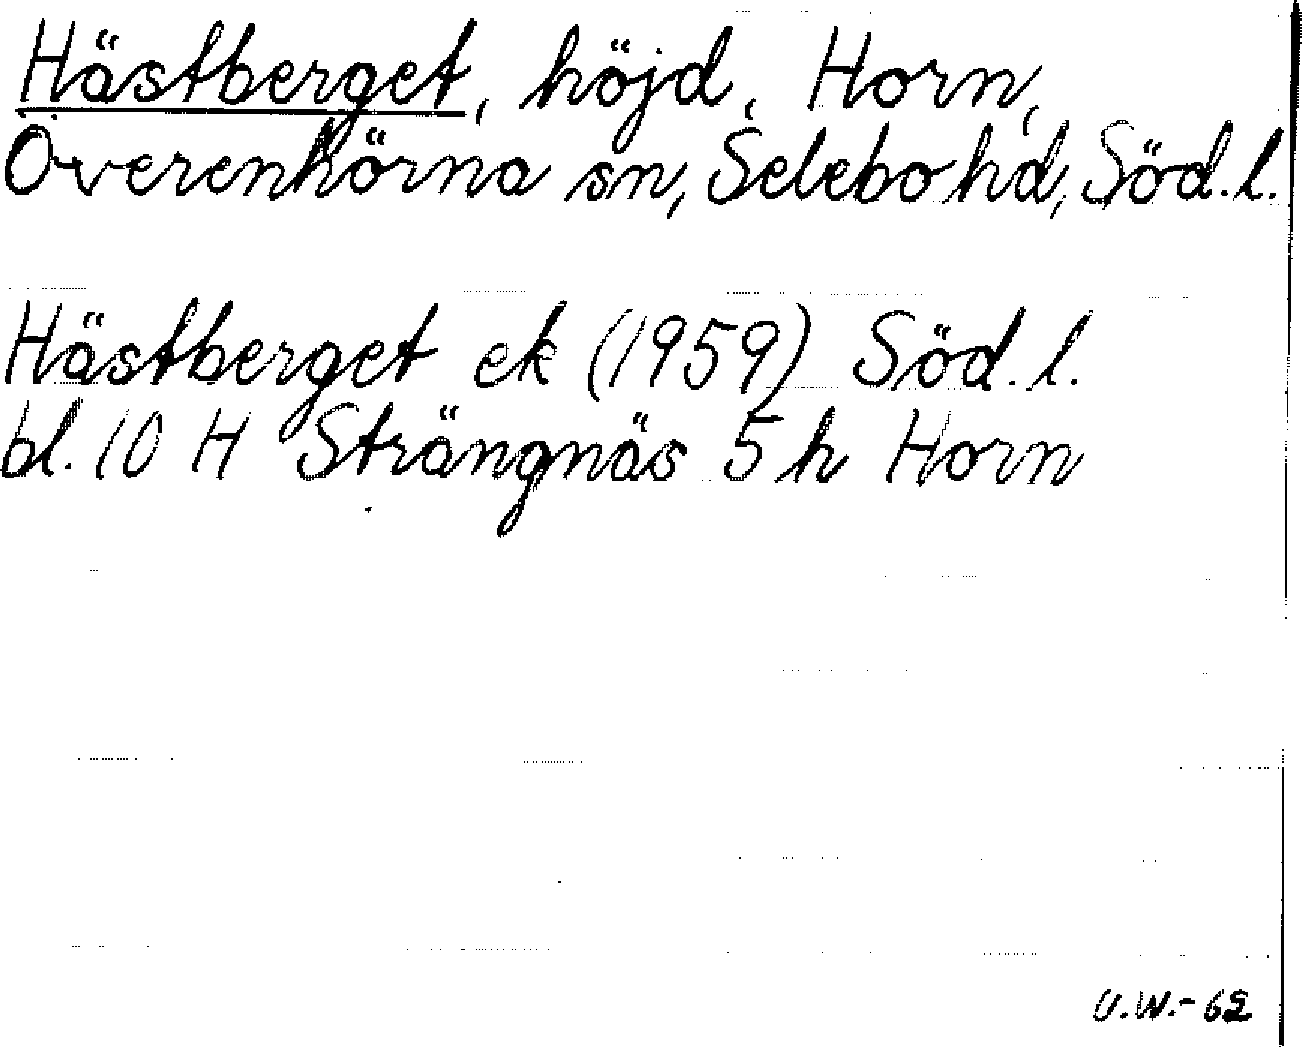 Hästberget, höjd, Horn,
Överenhörna sn, Selebo hd, Söd. l.
Hästberget ek (1959) Söd. l.
bl. 10 H Strängnäs 5 h Horn
U.W.-62